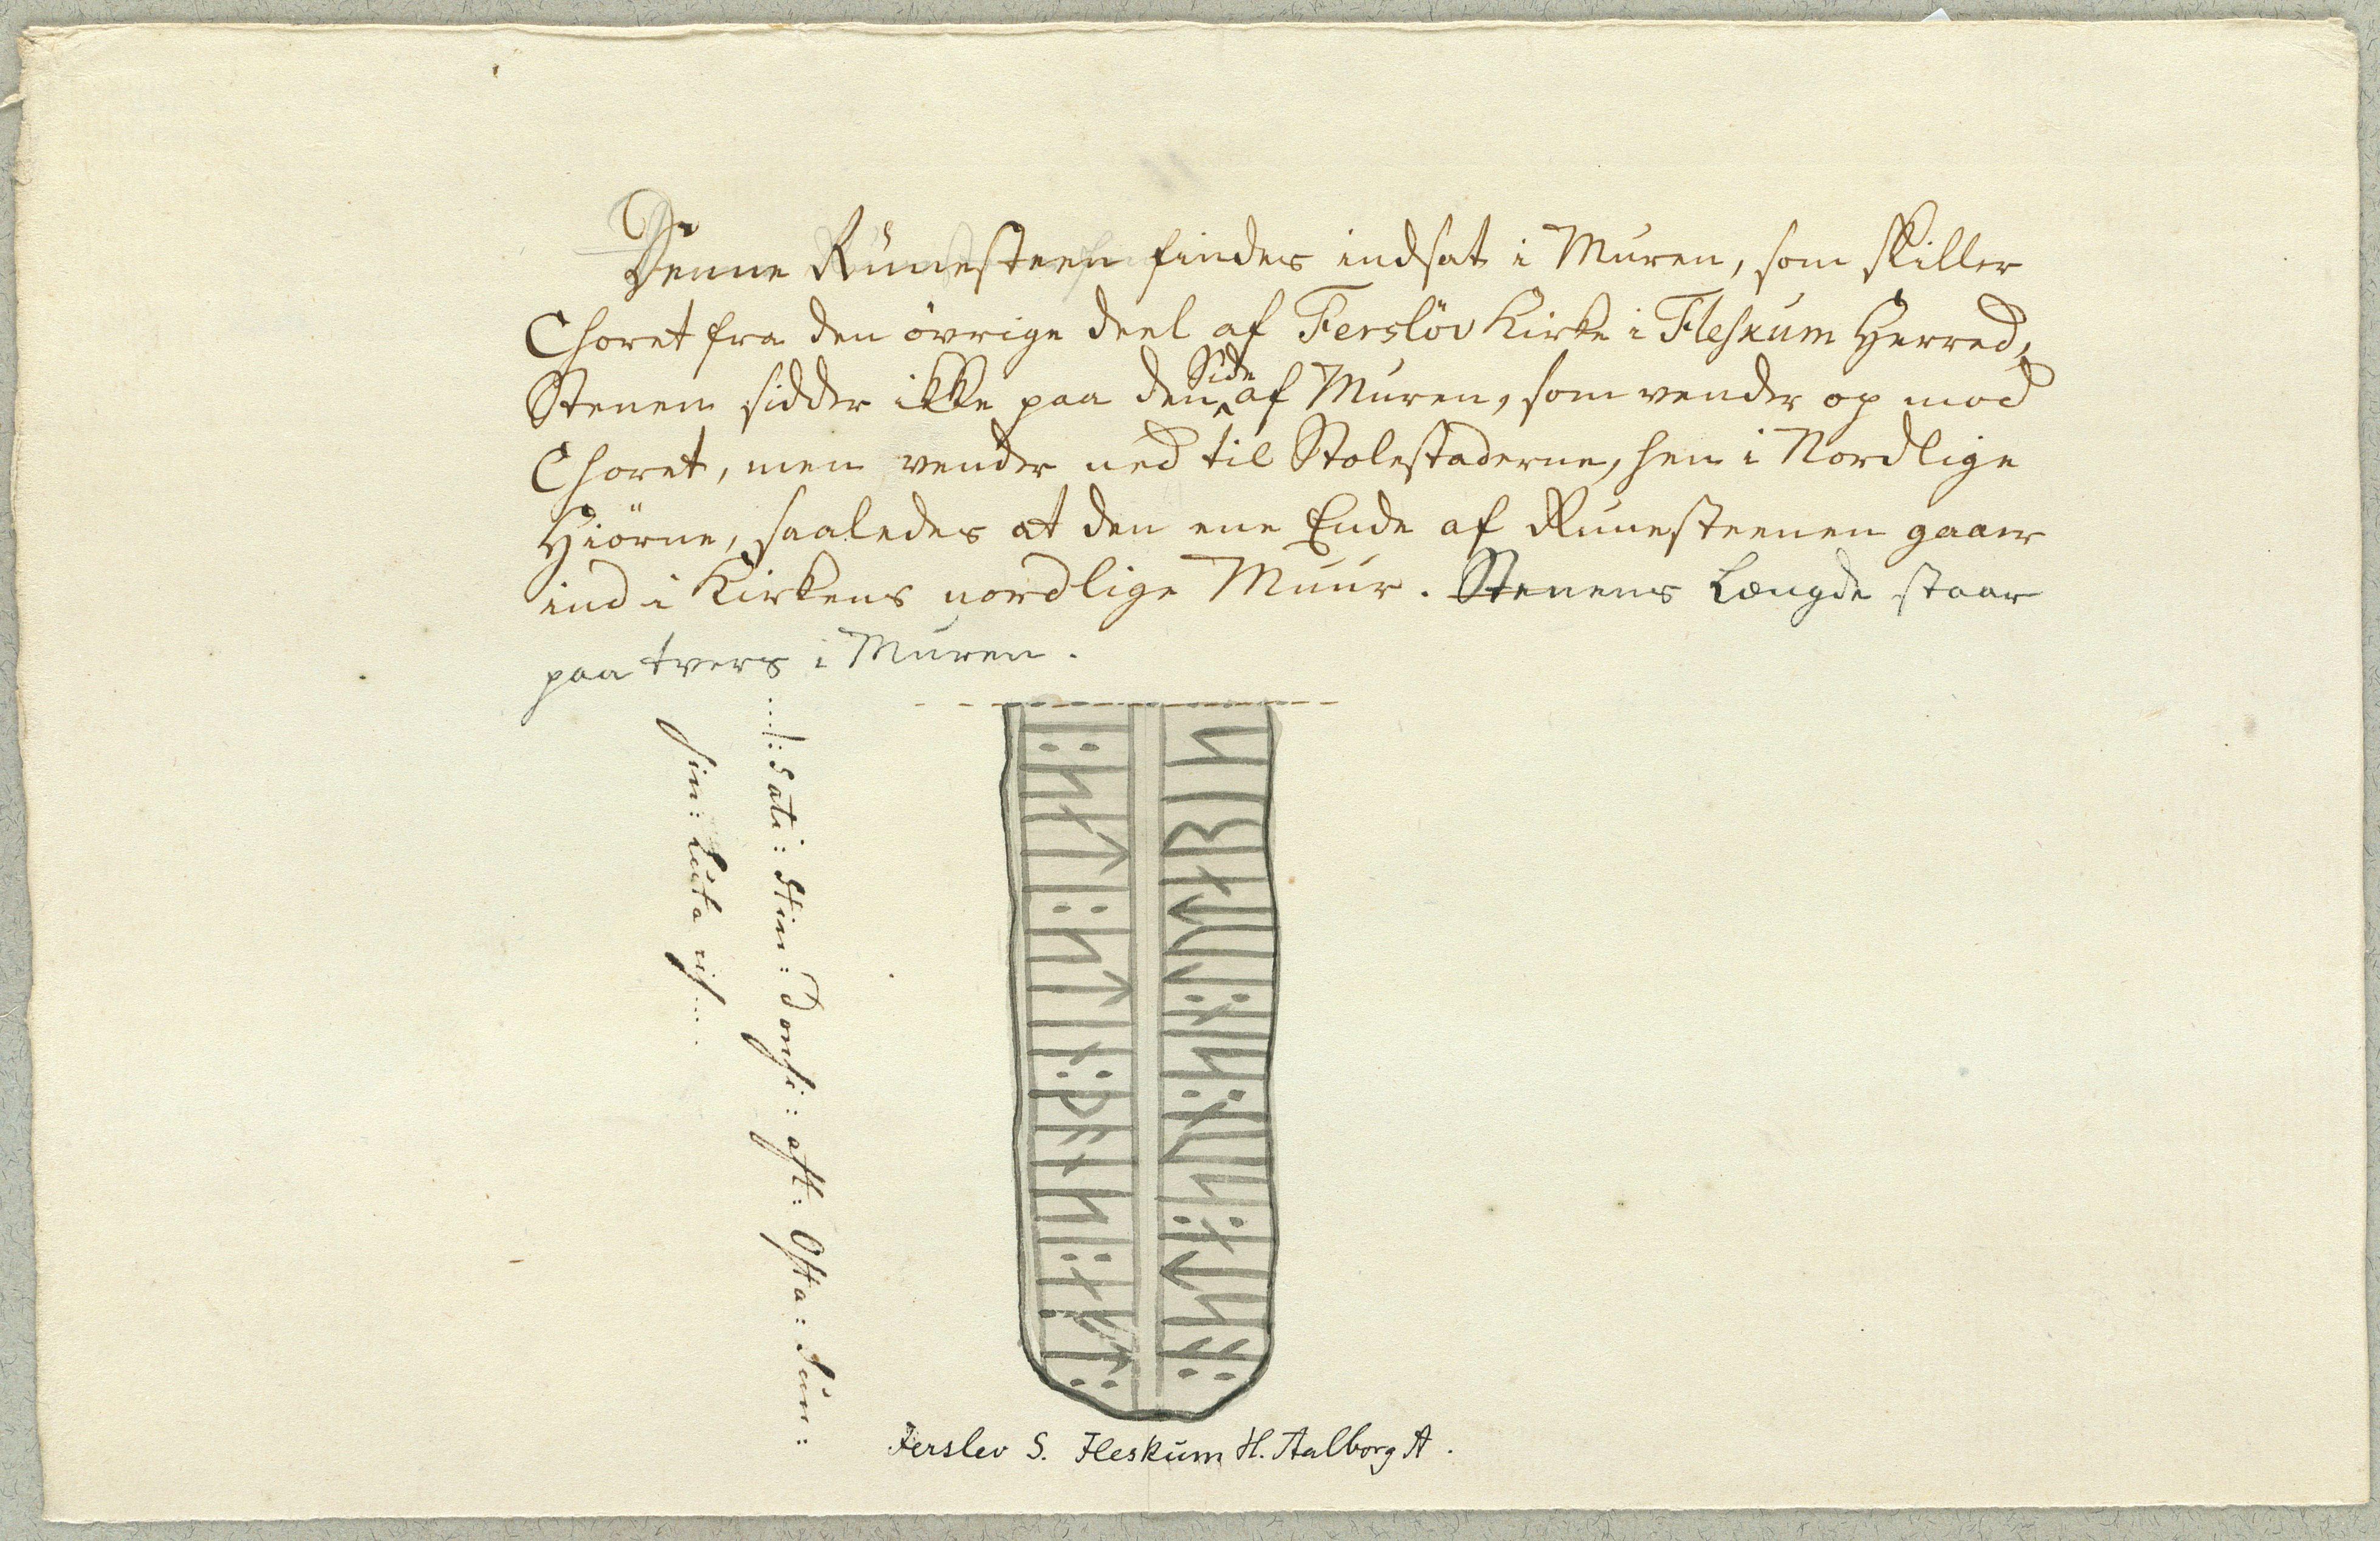 Denne Runesteen findes indsat i Muren, som skiller
Choret fra den övrige deel af Ferslöv Kirke i Fleskum Herred,
Stenen sidder ikke paa den Side af Muren, som vender op mod
Choret, men vender ned til Stolestaderne, hen i Nordlige
Hiörne, saaledes at den ene Ende af Runesteenen gaaer
ind i Kirkens nordlige Muur. Stenens Længde staar
paa tvers i Muren.
: sati : stin : : aft : Osta : sun :
sin : 
ᛁ:ᛋᛅᛏᛁ:ᛋᛏᛁᚾ:ᚦᚬᚾᛋᛁ:ᛅᚠᛏ:
ᚬᛋᛏᛅ:ᛋᚢᚾ:ᛋᛁᚾ:
Ferslev S. Fleskum H. Aalborg A.